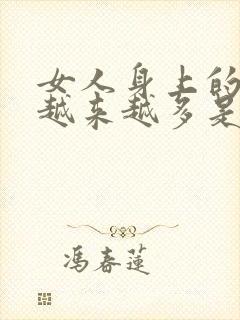 女人身上的
越来越多是
冯春莲